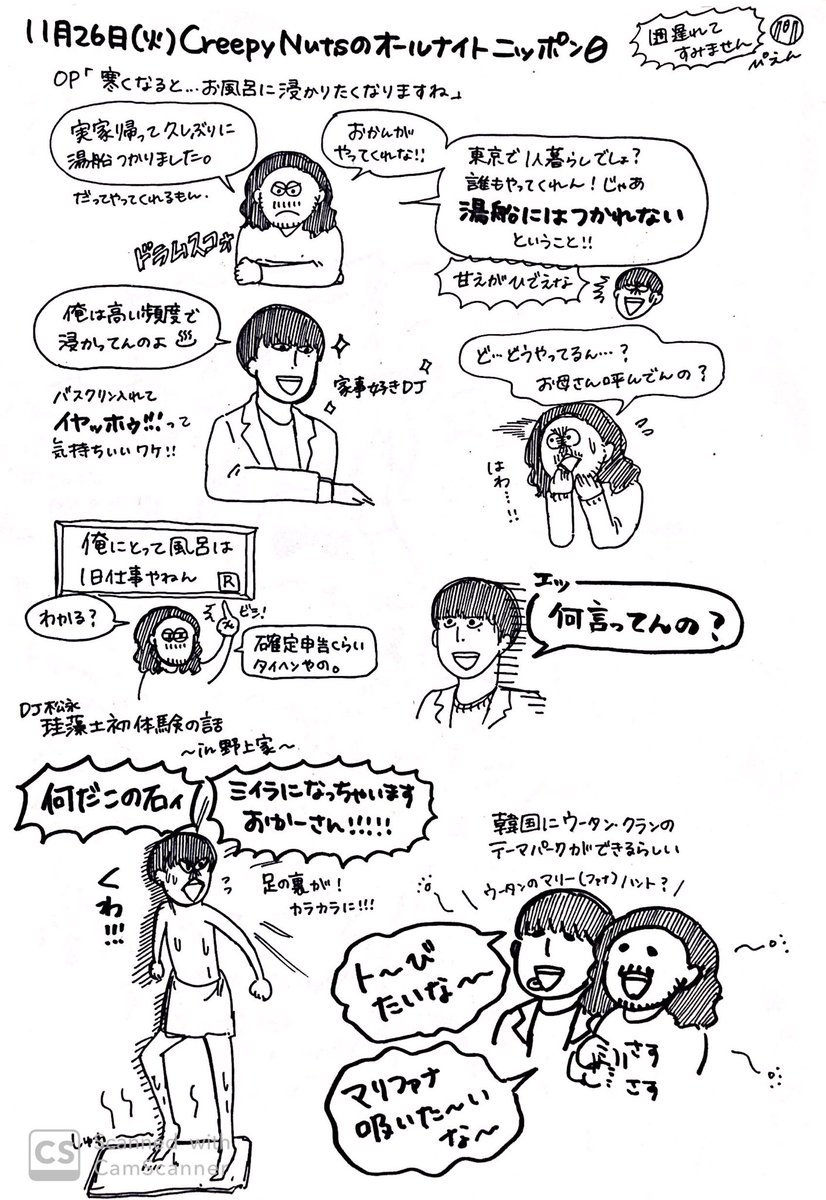 11月26日(火)CreepyNutsのオールナイトニッポン0
週遅れて
すみません
ぴえん
OP「寒くなると…お風呂に浸かりたくなりますね」
実家帰って久しぶりに
湯船つかりました。
だってやってくれるもん.
おかんが
やってくれな!!
東京で1人暮らしでしょ?
誰もやってくれん!じゃあ
湯船にはつかれない
ということ!!
甘えがひでえな
俺は高い頻度で
浸かってんのよ
バスクリン入れて
イヤッホゥ!!!って
気持ちいいワケ!!
家事好きDJ
ど…どうやってるん…?
お母さん呼んでんの?
はわ…!!
俺にとって風呂は
1日仕事やねん
R
わかる?
ビシ!
確定申告くらい
タイヘンやの。
エッ
何言ってんの?
DJ松永
珪藻土初体験の話
~in野上家~
何だこの石ィ
ミイラになっちゃいます
おかーさん!!!!!
くわ!!!
足の裏が!
カラカラに!!!
韓国にウータン・クランの
テーマパークができるらしい
ウータンのマリー(ファナ)ハント?
ト〜び
たいな〜
マリファナ
吸いた〜い
な〜
さす
さす
CS
Scanned with
CamScanner